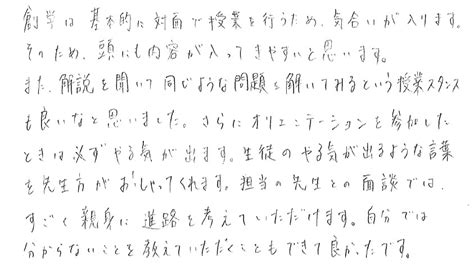 創学は基本的に対面で授業を行うため、気合いが入ります。
そのため、頭にも内容が入ってきやすいと思います。
また、解説を聞いて同じような問題を解いてみるという授業スタンス
も良いなと思いました。さらにオリエンテーションを参加した
ときは必ずやる気が出ます。生徒のやる気が出るような言葉
を先生方がおっしゃってくれます。担当の先生との面談では、
すごく親身に進路を考えていただけます。自分では
分からないことを教えていただくこともできて良かったです。